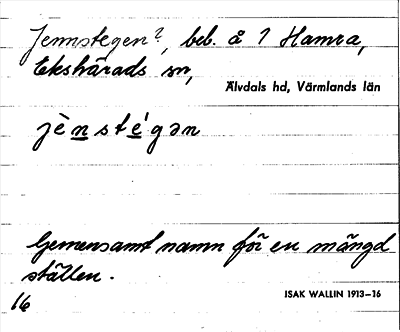 Jennstegen?, beb. å 1 Hamra,
Ekshärads sn,
Älvdals hd, Värmlands län
jènsté'gən
Gemensamt namn för en mängd
ställen.
16
ISAK WALLIN 1913–16